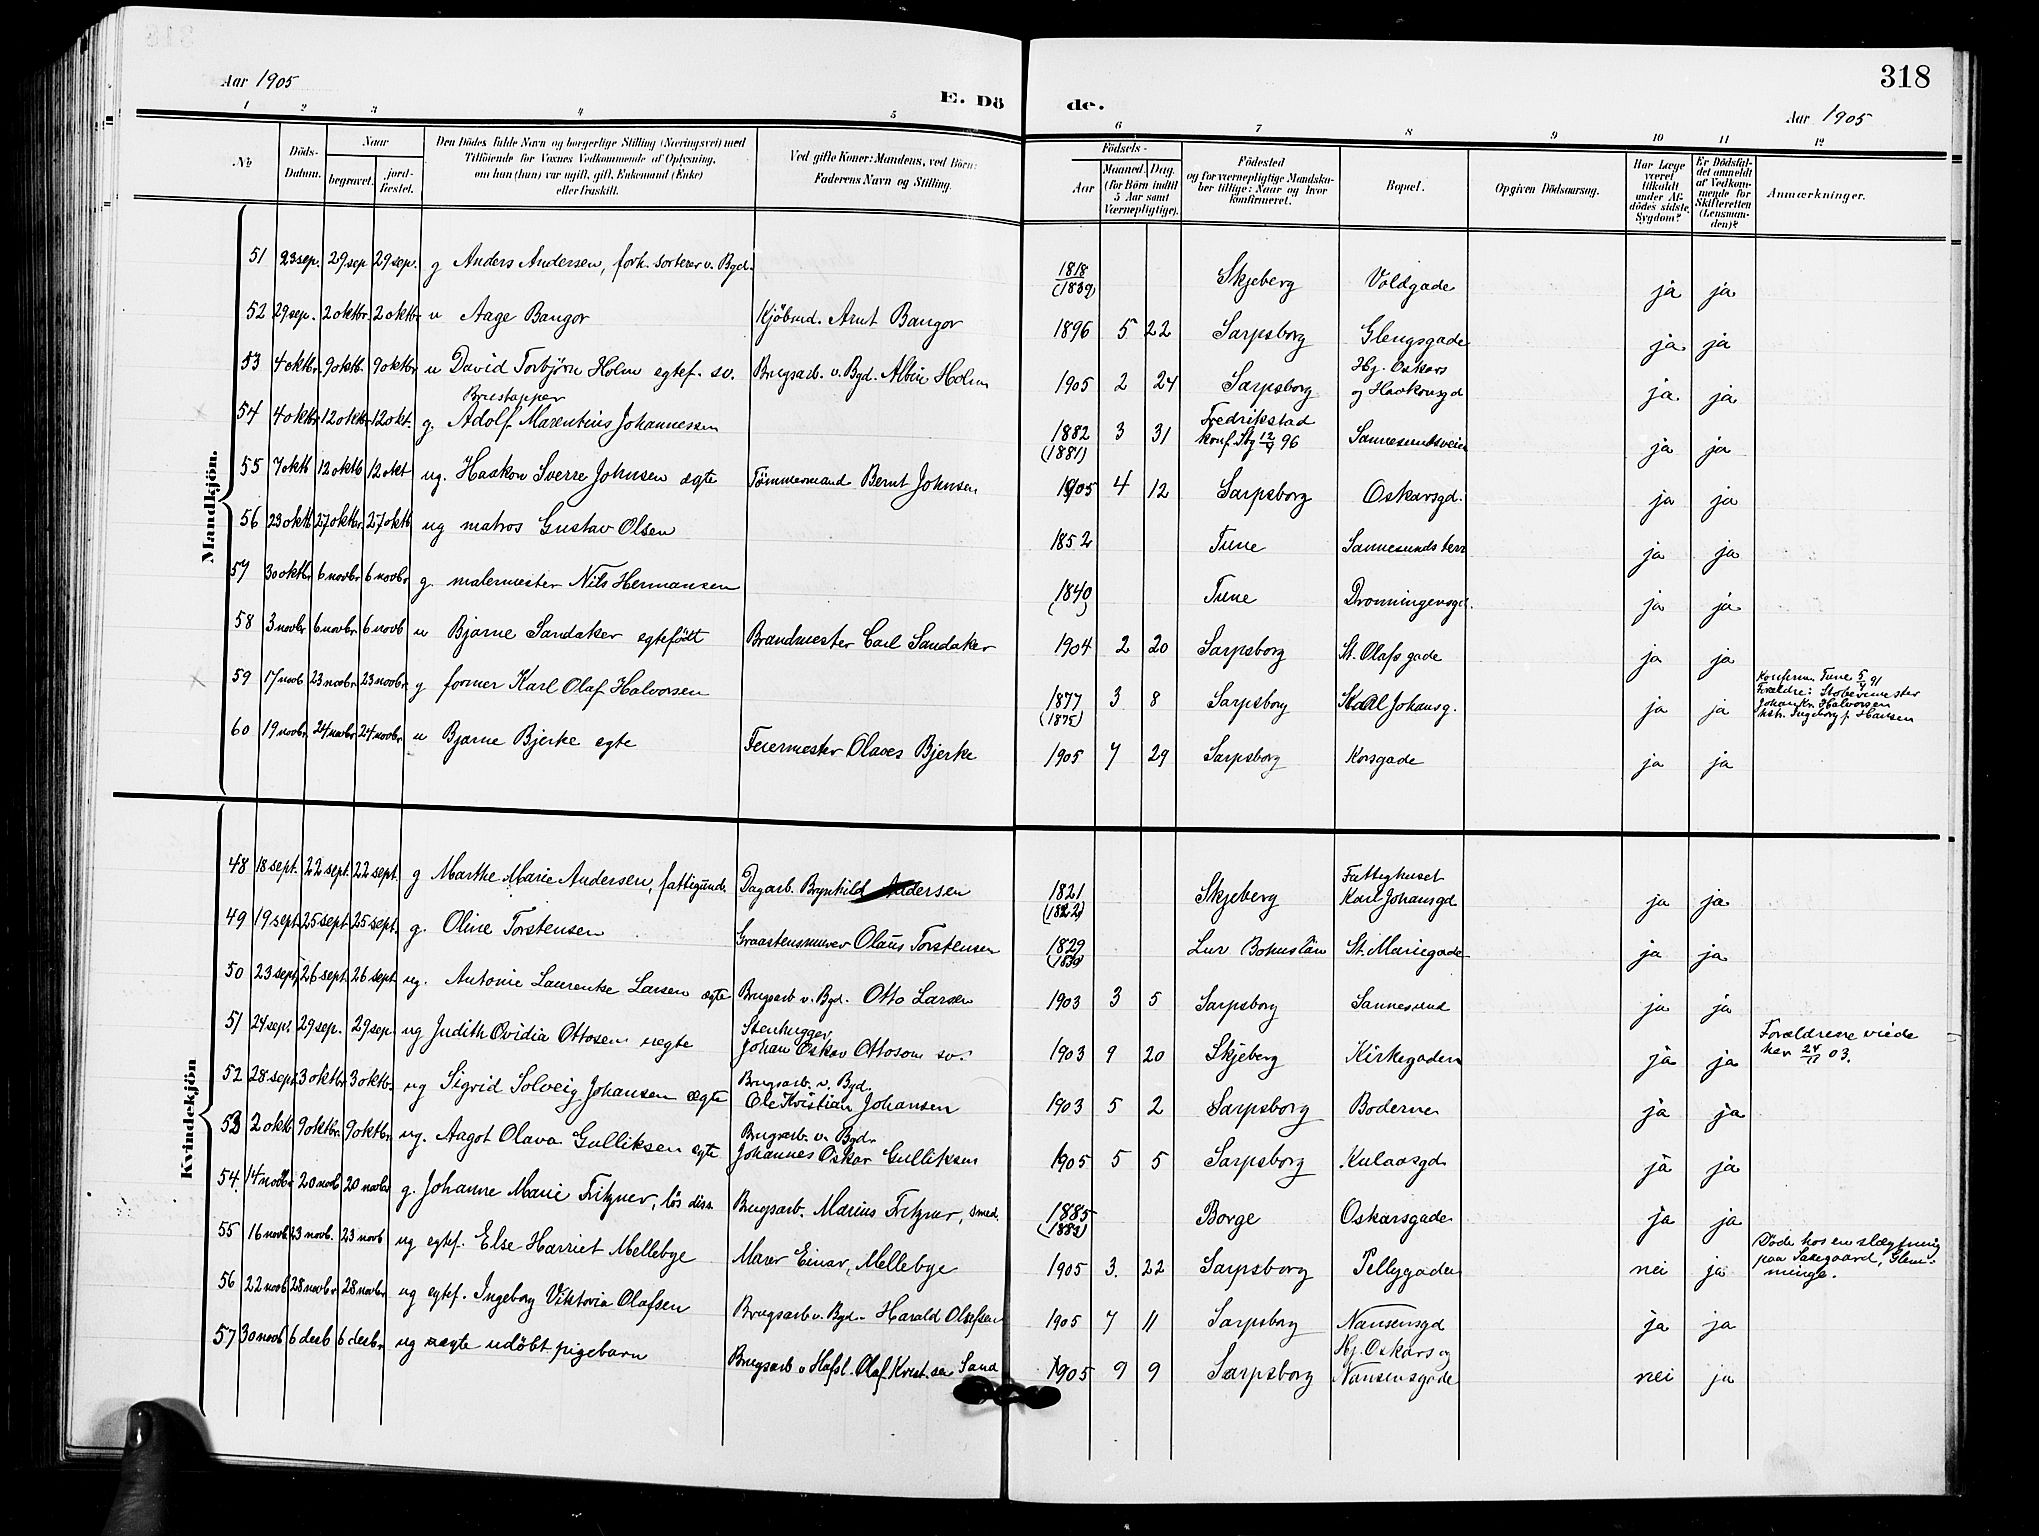 318
Aar 1905
E. Dö de.
Aar 1905
1 2 3 4 5 6 7 8 9 10 11 12
No
Döds-Datum.
Naar
begravet.
jordfæstet.
Den Dödes fulde Navn og borgerlige Stilling (Næringsvei) med
Tilföiende for Voxnes Vedkommende af Oplysning,
om han (hun) var ugift, gift, Enkemand (Enke)
eller fraskilt.
Ved gifte Koner: Mandens, ved Börn:
Faderens Navn og Stilling.
Födsels-
Aar
Maaned. Dag.
(for Börn indtil
5 Aar samt
Værnepligtige).
Födested
og for værnepligtige Mandskaber tillige: Naar og hvor
konfirmeret.
Bopæl.
Opgiven Dödsaarsag.
Har Læge
været
tilkaldt
under Afdödes sidste
Sygdom?
Er Dödsfaldet anmeldt
af Vedkommende for
Skifteretten
(Lensmanden)?
Anmærkninger.
Mandkjön.
51 23 sep. 29 sep 29 sep. g Anders Andersen, forh. sorterer v. Bgd. 1818 (1839) Skjeberg Voldgade ja ja
52 29 sep. 2 oktbr. 2 oktbr. u Aage Bangor Kjöbmd. Arnt Bangor 1896 5 22 Sarpsborg Glengsgade ja. ja
53 4 oktbr. 9 oktb. 9 oktbr. u David Torbjörn Holm egtef. sv. Brugsarb. v. Bgd. Albin Holm 1905 2 24 Sarpsborg Hj. Oskars og Haakonsgd ja. ja
54 4 oktbr. 12 oktbr. 12 okt. g. Brustapper Adolf Marentius Johannessen 1882 (1881) 3 31 Fredrikstad konf. Sbg 12/4 96 Sannesundsveien ja ja
55 7 oktb 12 oktb 12 okt ug. Haakon Sverre Johnsen egte Tömmermand Bernt Johnsen 1905 4 12 Sarpsborg Oskarsgd. ja ja
56 23 oktb 27 oktbr. 27 oktb ug matros Gustav Olsen 1852 Tune Sannesunds terr ja ja
57 30 oktbr 6 novbr 6 novbr g. malermester Nils Hermansen 1840 ( ) Tune Dronningensgd. ja ja
58 3 novbr 6 novbr. 6 novb u Bjarne Sandaker egtefödt Brandmester Carl Sandaker 1904 2 20 Sarpsborg St. Olafs gade ja ja
59 17 novb 23 novbr. 23 novbr. g former Karl Olaf Halvorsen 1877 (1875) 3 8 Sarpsborg Karl Johansg. ja ja
Konfirm. Tune 5/4 91
Forældre:
Johan Kr. Halvorsen
hstr. Ingeborg f. Hansen
60 19 novbr. 24 novbr. 24 novbr. u Bjarne Bjerke egte Feiermester Olaves Bjerke 1905 7 29 Sarpsborg Korsgade ja ja
Kvindekjön
48 18 sept. 22 sept. 22 sept. g Marthe Marie Andersen, fattigund. Dagarb. Brynhild Andersen 1821 (1822) Skjeberg Fattighuset Karl Johansgd ja ja
49 19 sept 25 sept 25 sept. g. Oline Torstensen Graastensmurer Olaüs Torstensen 1829 (1830) Lur Bohuslän St. Mariegade ja ja
50 23 sept. 26 sept. 26 sept. ug. Antonie Laurentse Larsen egte Brugsarb v. Bgd. Otto Larsen 1903 3 5 Sarpsborg Sannesund ja ja
51 24 sept. 29 sep. 29 sep. ug Judith Ovidia Ottosen uegte Stenhugger Johan Oskar Ottoson sv. 1903 9 20 Skjeberg Kirkegaden ja ja
Forældrene viede
her 24/11 03.
52 28 sept. 3 oktbr. 3 oktbr. ug Sigrid Solveig Johansen egte Brugsarb. v. Bgd. Ole Kristian Johansen 1903 5 2 Sarpsborg Boderne ja ja
53 2 oktb 9 oktbr. 9 oktbr. ug. Aagot Olava Gulliksen egte Brugsarb. v. Bgd. Johannes Oskar Gulliksen 1905 5 5 Sarpsborg Kulaasgd ja ja
54. 14 novbr. 20 novb 20 novbr g. Johanne Marie Fritzner, lös diss. Brugsarb. Marius Fritzner, smed. 1885 (1883) Borge Oskarsgade ja ja
55 16 novb. 23 novb. 23 novb ug egtef. Else Harriet Mellebye Murer Einar Mellebye 1905 3. 22 Sarpsborg Pellygaden nei ja
Döde hos en slægtning
paa , Glemminge.
56 22 novb 28 novbr 28 novbr. ug egtef. Ingeborg Viktoria Olafsen Brugsarb v. Bgd. Harald Olafsen 1905 7 11 Sarpsborg Nansensgd ja ja
57 30 novb 6 desb 6 desbr. ug uegte udöbt pigebarn Brugsarb v Hafsl. Olaf Krist.sen Sand 1905 9 9 Sarpsborg Hj. Oskars og Nansensgade nei ja